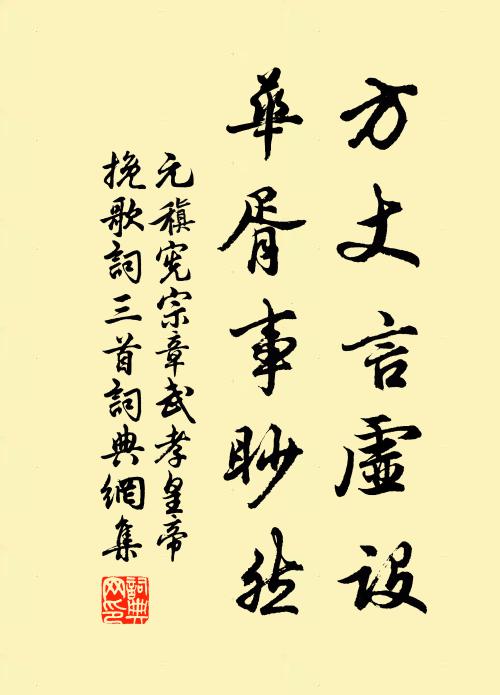 方丈言虛設
華胥事眇然
元稹憲宗章武孝皇帝
挽歌詞三首詞典網集